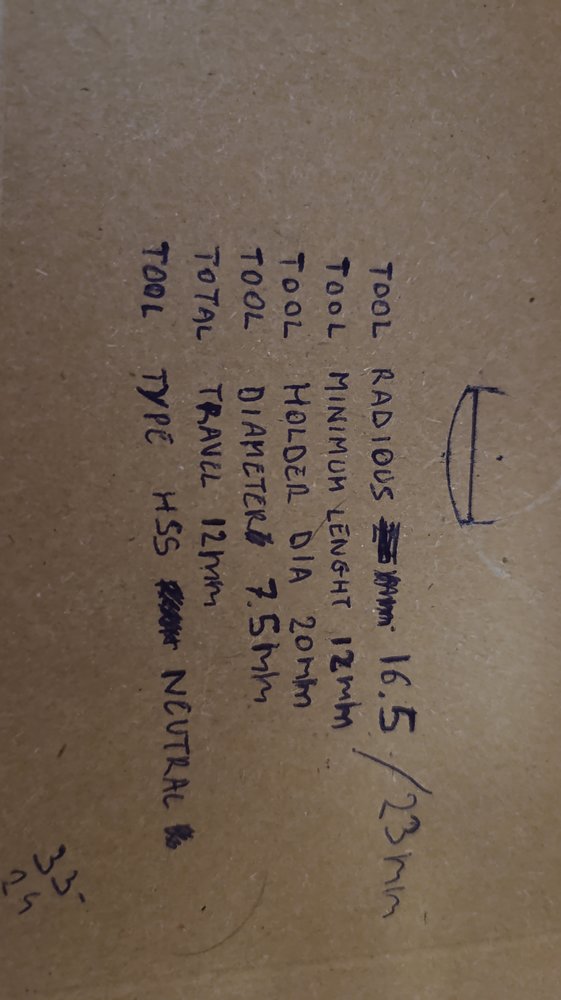 TOOL RADIOUS 16.5 / 23mm
TOOL MINIMUM LENGHT 12mm
TOOL HOLDER DIA 20mm
TOOL DIAMETER 7.5mm
TOTAL TRAVEL 12mm
TOOL TYPE HSS NEUTRAL
33